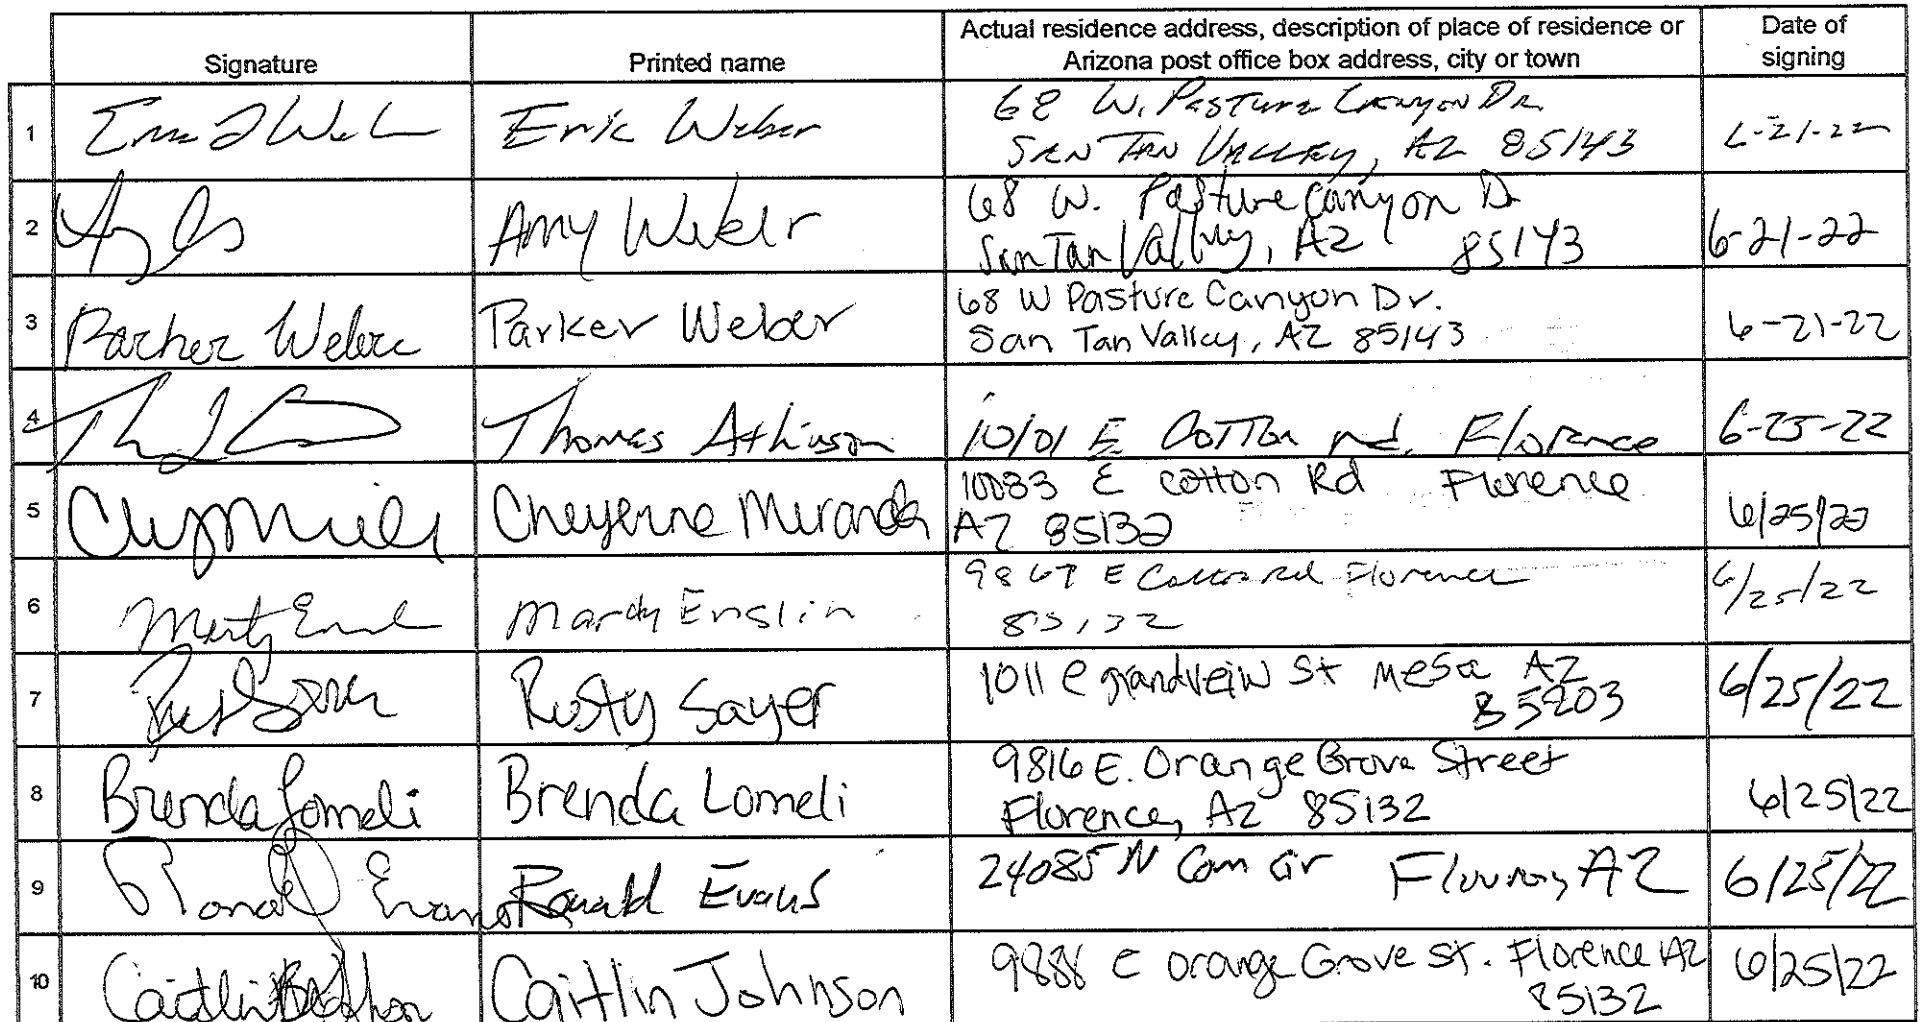 Signature Printed name Actual residence address, description of place of residence or Arizona post office box address, city or town Date of signing
1 Eric Weber 68 W. Pasture Canyon Dr
San Tan Valley, AZ 85143 6-21-22
2 Amy Weber 68 W. Pasture Canyon Dr
San Tan Valley, AZ 85143 6-21-22
3 Parker Weber Parker Weber 68 W Pasture Canyon Dr.
San Tan Valley, AZ 85143 6-21-22
4 Thomas Atkinson 10101 E Cotton rd. Florence 6-25-22
5 Cheyenne Miranda 10083 E Cotton Rd Florence
AZ 85132 6/25/22
6 Mardy Enslin 9867 E Cotton Rd Florence
85132 6/25/22
7 Rusty Sayer 1011 e grandveiw St Mesa AZ
85203 6/25/22
8 Brenda Lomeli Brenda Lomeli 9816 E. Orange Grove Street
Florence, AZ 85132 6/25/22
9 Ronald Evans Ronald Evans 24085 N Cir Florence, AZ 6/25/22
10 Caitlin Caitlin Johnson 9888 E Orange Grove St. Florence AZ
85132 6/25/22